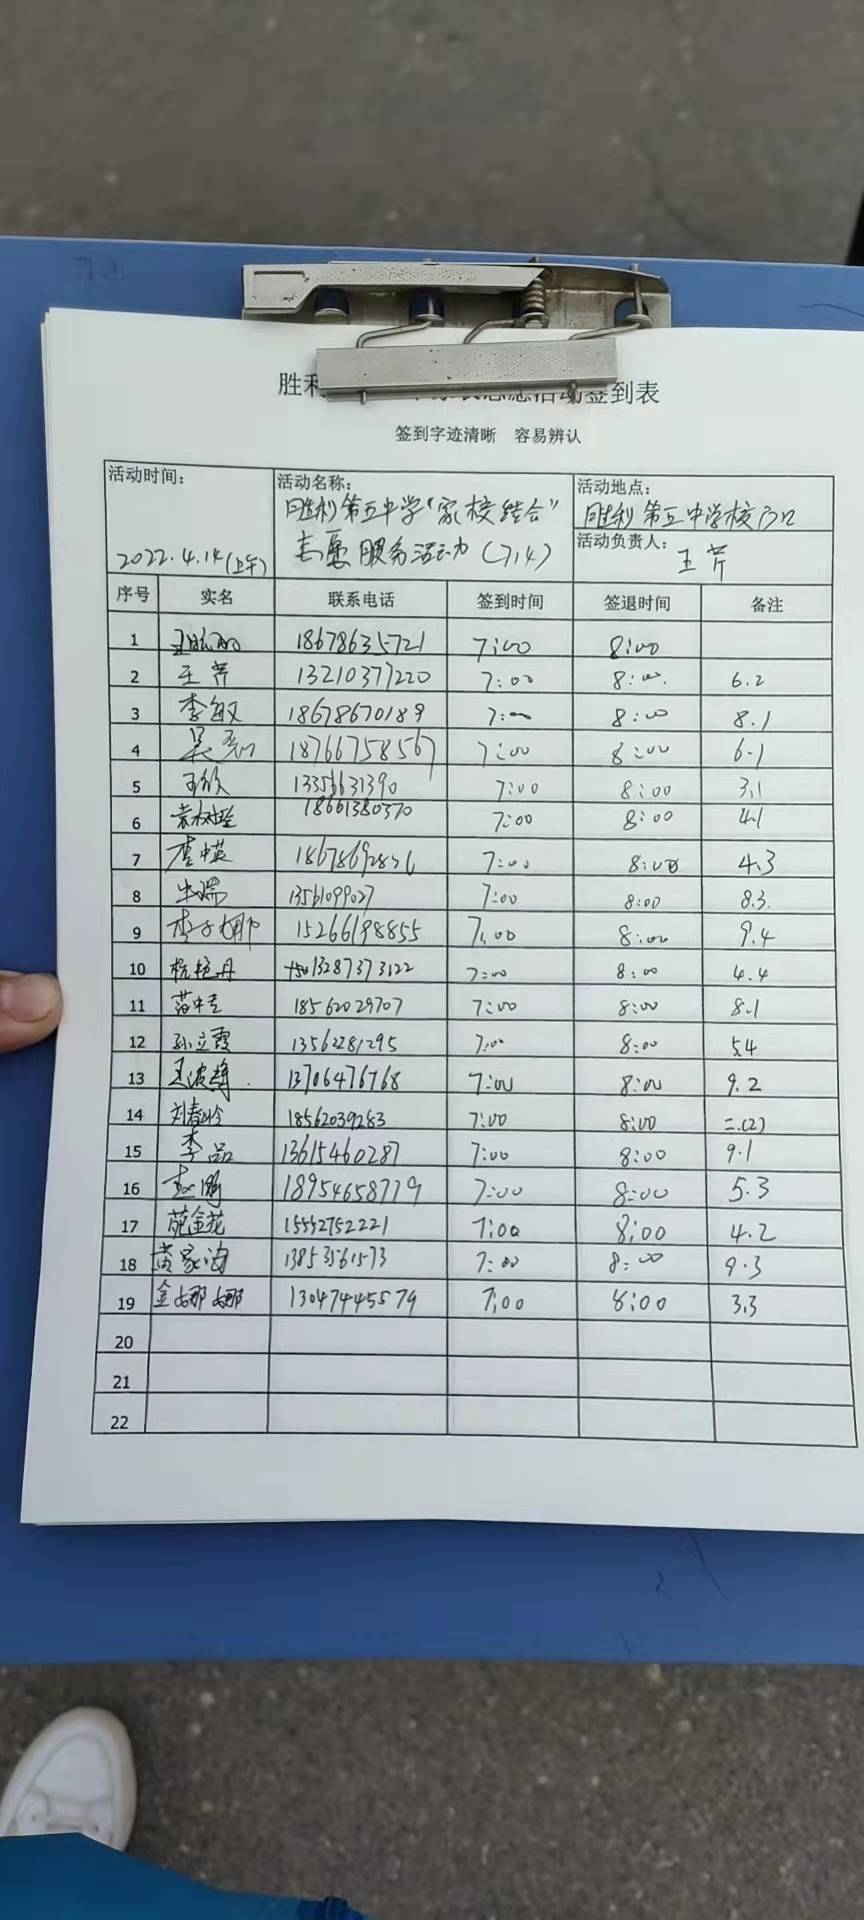 胜利
志愿活动签到表
签到字迹清晰 容易辨认
活动时间: 2022.4.14(上午)
活动名称: 胜利第五中学“家校结合”
志愿服务活动(714)
活动地点: 胜利第五中学校门口
活动负责人: 王芹
序号 实名 联系电话 签到时间 签退时间 备注
1 18678635721 7:00 8:00
2 王芹 13210377220 7:00 8:00. 6.2
3 李敏 18678670189 7:00 8:00 8.1
4 吴 18766758567 7:00 8:00 6.1
5 王欣 13356631390 7:00 8:00 3.1
6 袁树 18661380370 7:00 8:00 4.1
7 李中英 7:00 8:00 4.3
8 瑞 13561099027 7:00 8:00 8.3.
9 李娜 15266198855 7:00 8:00 9.4
10 杭艳丹 13287373122 7:00 8:00 4.4
11 18562029707 7:00 8:00 8.1
12 孙立霞 13562281295 7:00 8:00 5.4
13 王波 13706476768 7:00 8:00 9.2
14 刘春岭 18562039283 7:00 8:00 二.(2)
15 李品 13615460287 7:00 8:00 9.1
16 赵鹏 18954658779 7:00 8:00 5.3
17 苑金花 15552752221 7:00 8:00 4.2
18 黄家海 13853561573 7:00 8:00 9.3
19 金娜娜 13047445579 7:00 8:00 3.3
20
21
22